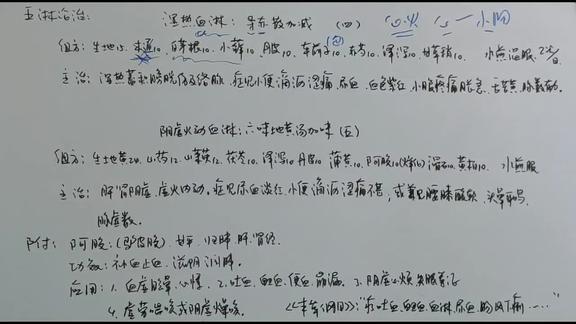 五淋治治: 湿热血淋: 导赤散加减 (四) 心火 心—小肠
组方: 生地15. 木通10. 白茅根10. 小蓟10. 丹皮10. 车前子10. 赤芍10. 泽泻10. 甘草梢10. 水煎温服. 2次/日
主治: 湿热蓄积膀胱伤及络脉. 症见小便涌沥涩痛. 尿血. 血色紫红. 小腹疼痛胀急. 舌苔黄. 脉数有力.
阴虚火动血淋: 六味地黄汤加味 (五)
组方: 生地黄24. 山药12. 山萸12. 茯苓10. 泽泻10. 丹皮10 蒲黄10. 阿胶10(烊化) 滑石10. 黄柏10. 水煎服
主治: 肝肾阴虚. 虚火内动. 症见尿血淡红. 小便涌沥涩痛不甚, 或兼见腰膝酸软. 头晕耳鸣.
脉虚数.
附: 阿胶: (驴皮胶). 甘平. 归肺肝肾经.
功效: 补血止血. 滋阴润肺.
应用: 1. 血虚眩晕. 心悸. 2. 吐血. 衄血. 便血. 崩漏. 3. 阴虚心烦失眠等症
4. 虚劳喘咳或阴虚燥咳. 《本草纲目》: "疗吐血. 衄血. 血淋. 尿血. 肠风下痢......"